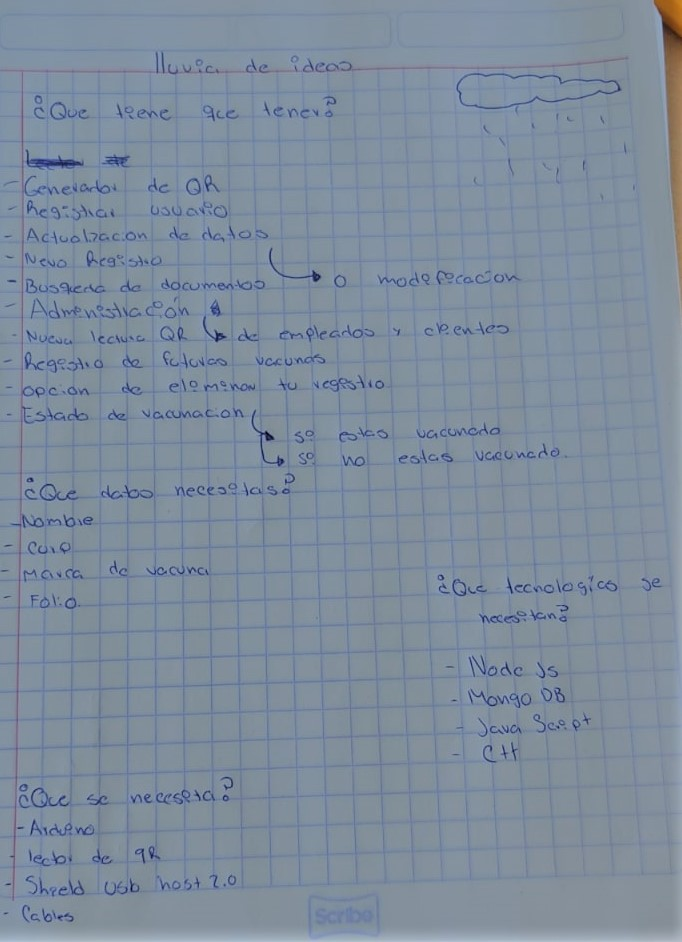 lluvia de ideas
¿Que tiene que tener?
- Generador de QR
- Registrar usuario
- Actualizacion de datos
- Nevo Registro
↳ o modificacion
- Busqueda de documentos
- Administración
- Nueva lectura QR
↳ de empleados y clientes
- Registro de futuras vacunas
- opcion de eliminar tu registro
- Estado de vacunacion
↳ si estas vacunado
↳ si no estas vacunado.
¿Que datos necesitas?
- Nombre
- Curp
- Marca de vacuna
- Folio.
¿Que tecnologias se
necesitan?
- Node Js
- Mongo DB
- Java Script
- C++
¿Que se necesita?
- Arduino
- lector de QR
- Shield usb host 2.0
- Cables
Scribe